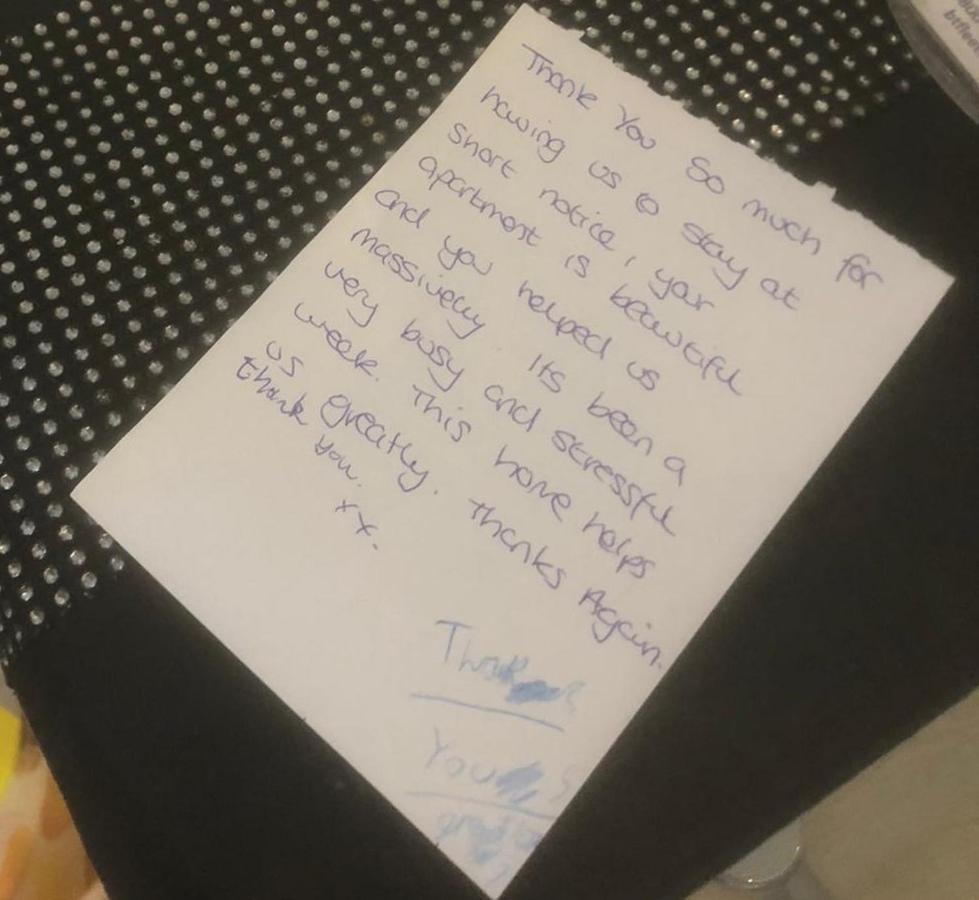 Thank You So much for
having us to stay at
short notice, your
apartment is beautiful
and you helped us
massively. Its been a
very busy and stressful
week. This home helps
us greatly. thanks Again.
thank
you.
xx.
Thank
You